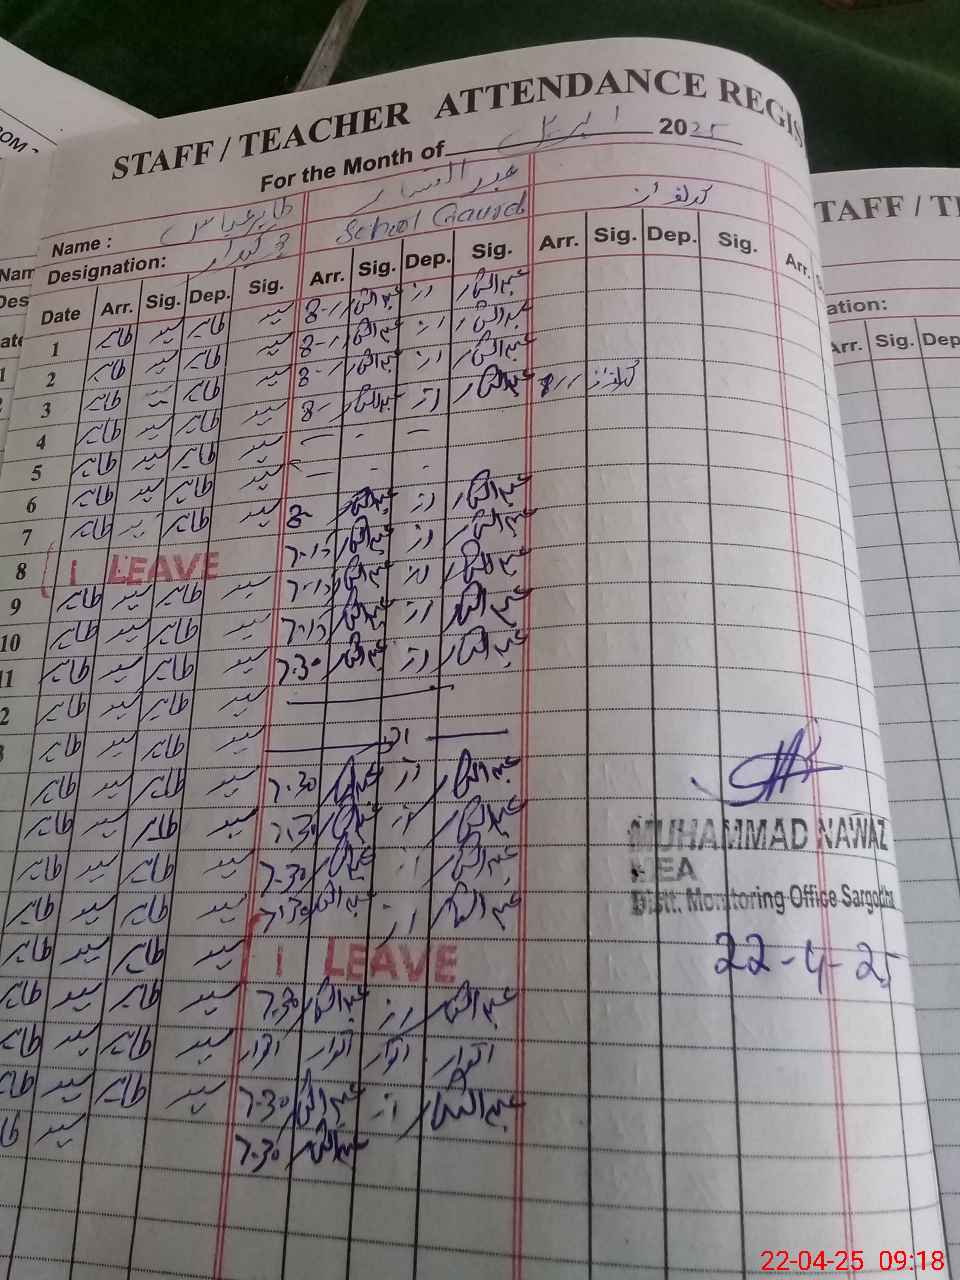 STAFF / TEACHER ATTENDANCE REGIS
For the Month of اپریل 2025
Name : طاہر عباس عبدالستار گلفراز
Designation: چوکیدار School Gaurd
Date Arr. Sig. Dep. Sig. Arr. Sig. Dep. Sig. Arr. Sig. Dep. Sig. Arr.
1 طاہر سید طاہر سید 8-- عبدالستار عبدالستار
2 طاہر سید طاہر سید 8-- عبدالستار عبدالستار
3 طاہر سید طاہر سید 8-- عبدالستار عبدالستار
4 طاہر سید طاہر سید 8-- عبدالستار عبدالستار 8-- گلفراز
5 طاہر سید طاہر سید - - -
6 طاہر سید طاہر سید - - -
7 طاہر طاہر سید 8- عبدالستار عبدالستار
8 1 LEAVE 7-15 عبدالستار عبدالستار
9 طاہر سید طاہر سید 7-15 عبدالستار عبدالستار
10 طاہر سید طاہر سید 7-15 عبدالستار عبدالستار
11 طاہر سید طاہر سید 7.30 عبدالستار عبدالستار
2 طاہر سید طاہر سید
3 طاہر سید طاہر سید اتوار
طاہر سید طاہر سید 7.30 عبدالستار عبدالستار
طاہر سید طاہر سید 7.30 عبدالستار عبدالستار
طاہر سید طاہر سید 7.30 عبدالستار عبدالستار
طاہر سید طاہر سید 7.30 عبدالستار عبدالستار
طاہر سید طاہر سید 1 LEAVE
طاہر سید طاہر سید 7.30 عبدالستار عبدالستار
طاہر سید طاہر سید اتوار اتوار اتوار اتوار
طاہر سید طاہر سید 7-30 عبدالستار عبدالستار
طاہر سید 7-30 عبدالستار
MUHAMMAD NAWAZ
MEA
Distt. Monitoring Office Sargodha
22-4-25
TAFF / T
ation:
Arr. Sig. Dep
22-04-25 09:18